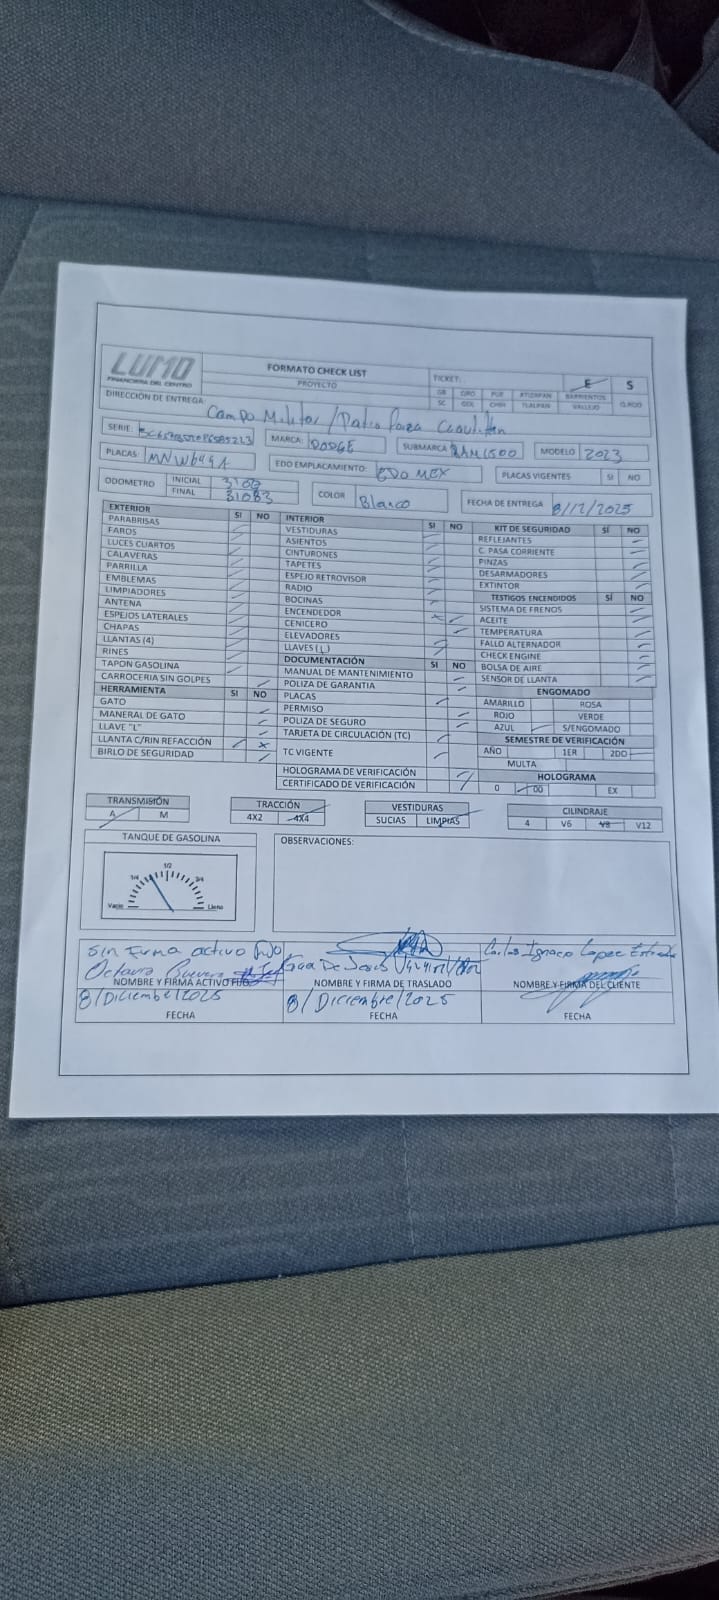 LUMO
FINANCIERA DEL CENTRO
FORMATO CHECK LIST
PROYECTO
TICKET:
E S
DIRECCIÓN DE ENTREGA: Campo Militar /
SERIE:
MARCA: DODGE
SUBMARCA RAM 1500
MODELO 2023
PLACAS:
EDO EMPLACAMIENTO: EDO MEX
PLACAS VIGENTES SI NO
ODOMETRO INICIAL
FINAL 31083
COLOR Blanco
FECHA DE ENTREGA 8/12/2025
EXTERIOR SI NO
PARABRISAS
FAROS
LUCES CUARTOS
CALAVERAS
PARRILLA
EMBLEMAS
LIMPIADORES
ANTENA
ESPEJOS LATERALES
CHAPAS
LLANTAS (4)
RINES
TAPON GASOLINA
CARROCERIA SIN GOLPES
HERRAMIENTA SI NO
GATO
MANERAL DE GATO
LLAVE "L"
LLANTA C/RIN REFACCIÓN
BIRLO DE SEGURIDAD
INTERIOR SI NO
VESTIDURAS
ASIENTOS
CINTURONES
TAPETES
ESPEJO RETROVISOR
RADIO
BOCINAS
ENCENDEDOR
CENICERO
ELEVADORES
LLAVES (L)
DOCUMENTACIÓN SI NO
MANUAL DE MANTENIMIENTO
POLIZA DE GARANTIA
PLACAS
PERMISO
POLIZA DE SEGURO
TARJETA DE CIRCULACIÓN (TC)
TC VIGENTE
HOLOGRAMA DE VERIFICACIÓN
CERTIFICADO DE VERIFICACIÓN
KIT DE SEGURIDAD SÍ NO
REFLEJANTES
C. PASA CORRIENTE
PINZAS
DESARMADORES
EXTINTOR
TESTIGOS ENCENDIDOS SÍ NO
SISTEMA DE FRENOS
ACEITE
TEMPERATURA
FALLO ALTERNADOR
CHECK ENGINE
BOLSA DE AIRE
SENSOR DE LLANTA
ENGOMADO
AMARILLO ROSA
ROJO VERDE
AZUL S/ENGOMADO
SEMESTRE DE VERIFICACIÓN
AÑO 1ER 2DO
MULTA
HOLOGRAMA
0 00 EX
TRANSMISIÓN
A M
TRACCIÓN
4X2 4X4
VESTIDURAS
SUCIAS LIMPIAS
CILINDRAJE
4 V6 V8 V12
TANQUE DE GASOLINA
1/4 1/2 3/4
Vacio Lleno
OBSERVACIONES:
Sin Firma activo
Carlos Ignacio Lopez Estrada
NOMBRE Y FIRMA ACTIVO FIJO
NOMBRE Y FIRMA DE TRASLADO
NOMBRE Y FIRMA DEL CLIENTE
8/Diciembre/2025
8/Diciembre/2025
FECHA
FECHA
FECHA